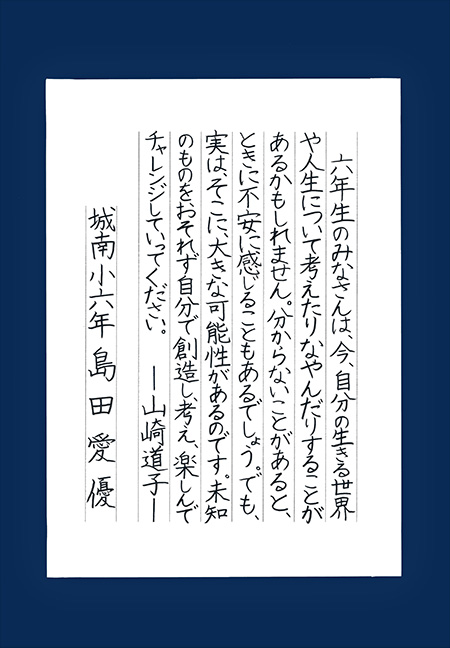 六年生のみなさんは、今、自分の生きる世界
や人生について考えたりなやんだりすることが
あるかもしれません。分からないことがあると、
ときに不安に感じることもあるでしょう。でも、
実は、そこに、大きな可能性があるのです。未知
のものを、おそれず自分で創造し、考え、楽しんで
チャレンジしていってください。 ー山崎道子ー
城南小六年 島田愛優